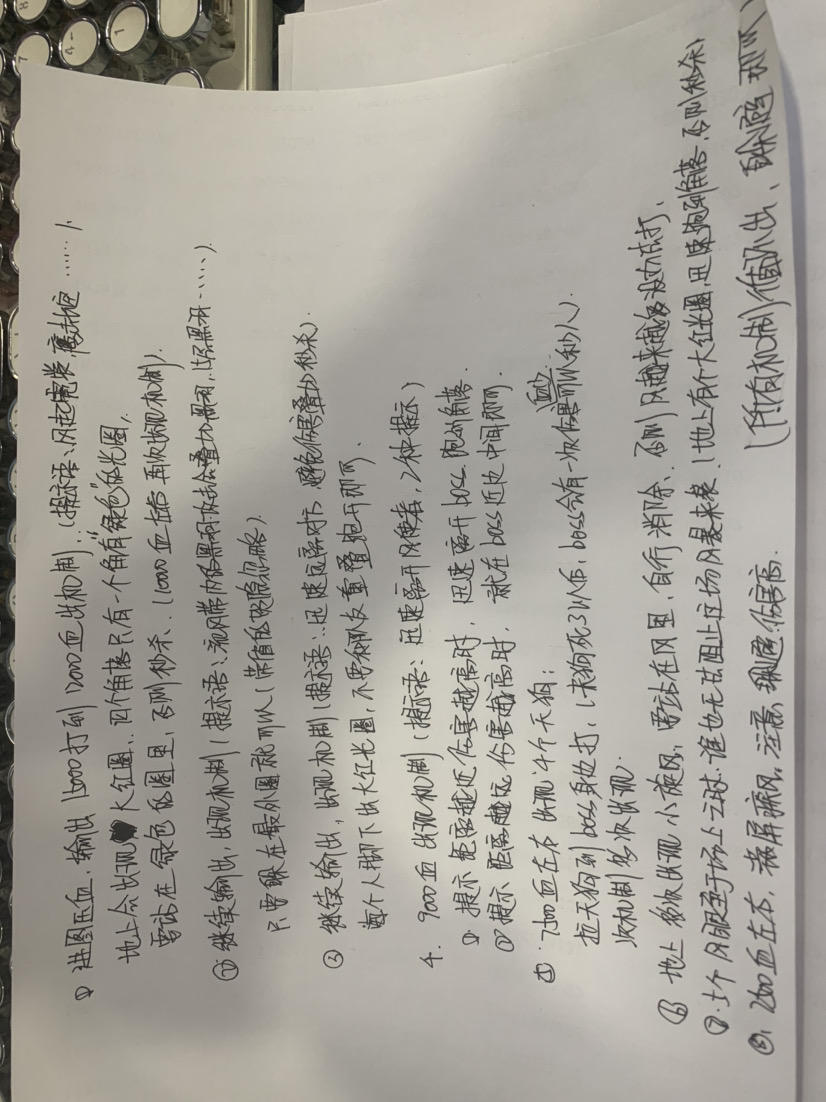 ① 进图压血，输出15000打到12000血出机制．（提示语：风起荒芜，席卷 ……）．
地上会出现大红圈．四个角落只有一个角有"绿色"的光圈，
要站在绿色的圈里，否则秒杀．（11000血左右再次出现机制）．
② 继续输出，出现机制（提示语：
只要躲在最外圈就可以（
③ 继续输出，出现机制（提示语：迅速远离对方，避免伤害叠加秒杀）．
每个人脚下出大红光圈，不要和队友重叠跑开即可．
4． 9000血出现机制（提示语：迅速离开风使者，2种提示）
① 提示 距离越近伤害越高时，迅速离开boss跑到角落．
② 提示 距离越远伤害越高时，就在boss近处中间即可．
⑤ 7500血左右出现4个天狗；
拉天狗到boss身边打，（天狗死3以后，boss会有一次伤害可以秒人）．
次机制多次出现．
⑥ 地上多次出现小旋风，要站在风里，自行消除，否则风越来越多没办法打，
⑦ 当个风眼至于场上之时．谁也无法阻止这场风暴来袭．（地上有个大红光圈，迅速跑到角落，否则秒杀）
⑧．2500血左右，满屏飓风，注意 躲避，伤害高．
（所有机制停输出， 即可）